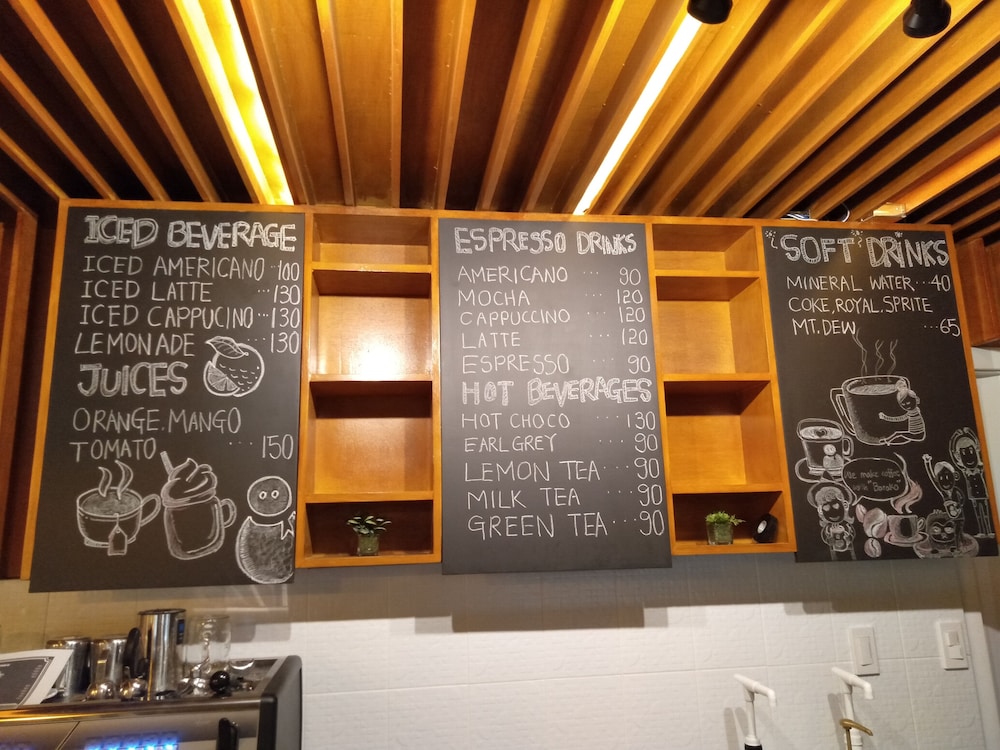 ICED BEVERAGE
ICED AMERICANO··100
ICED LATTE ···130
ICED CAPPUCINO···130
LEMONADE ···130
JUICES
ORANGE.MANGO
TOMATO ···150
ESPRESSO DRINKS
AMERICANO ··· 90
MOCHA ··· 120
CAPPUCCINO ··· 120
LATTE ··· 120
ESPRESSO ··· 90
HOT BEVERAGES
HOT CHOCO ··· 130
EARL GREY ··· 90
LEMON TEA ··· 90
MILK TEA ··· 90
GREEN TEA ··· 90
"SOFT" DRINKS
MINERAL WATER···40
COKE,ROYAL.SPRITE
MT. DEW ···65
We make coffee
with "Barako"